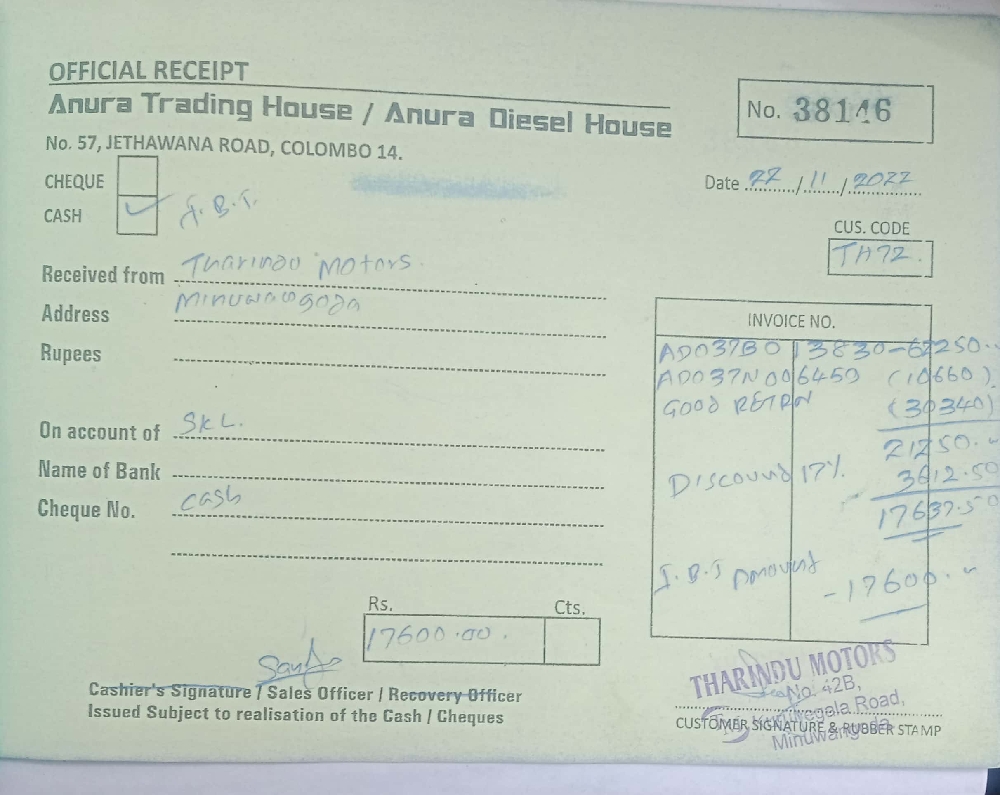 OFFICIAL RECEIPT
Anura Trading House / Anura Diesel House
No. 38146
No. 57, JETHAWANA ROAD, COLOMBO 14.
CHEQUE
Date 22/11/2022
CASH ✓ I.B.T.
CUS. CODE
TH72.
Received from Tharindu Motors.
Address Minuwangoda
INVOICE NO.
Rupees
AD037B013830-62250..
AD037N006459 (10660)
GOOD RETRN (30340)
On account of SKL.
21250.-
Name of Bank
Discound 17% 3612.50
Cheque No. cash
17637.50
I.B.T Amount -17600.-
Rs. Cts.
17600.00.
THARINDU MOTORS
No. 42B,
Road,
Minuwangoda
Cashier's Signature / Sales Officer / Recovery Officer
Issued Subject to realisation of the Cash / Cheques
CUSTOMER SIGNATURE & RUBBER STAMP